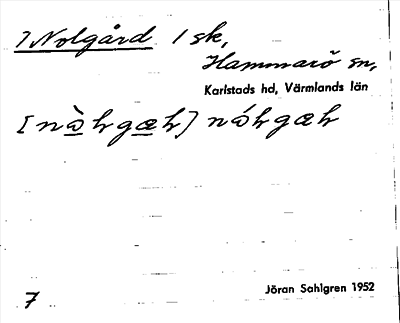 ? Nolgård 1 sk,
Hammarö sn,
Karlstads hd, Värmlands län
[nòhgæh) nóhgæh
7
Jöran Sahlgren 1952